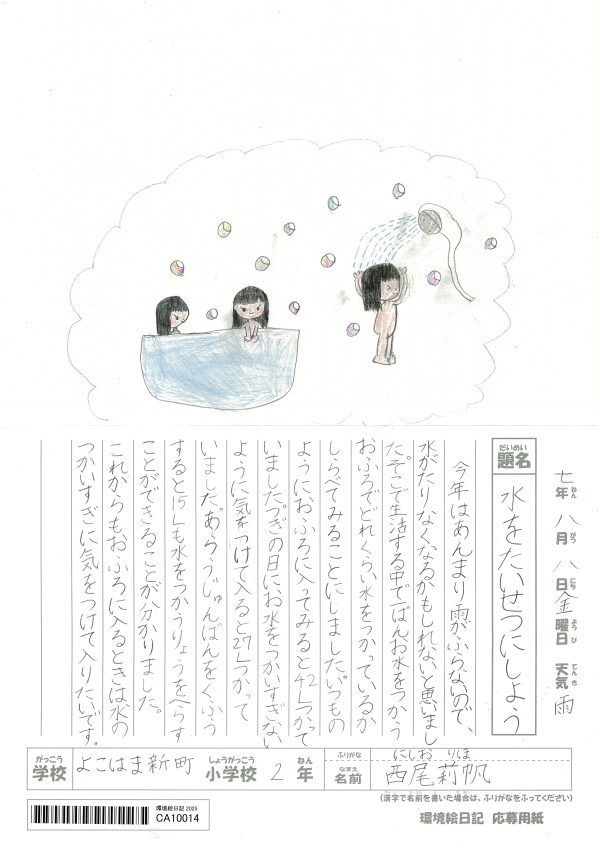 七年八月八日金曜日 天気 雨
ねん がつ にち よう び てん き
だいめい
題名
水をたいせつにしよう
今年はあんまり雨がふらないので、
水がたりなくなるかもしれないと思いまし
た。そこで生活する中で一ばんお水をつかう
おふろでどれくらい水をつかっているか
しらべてみることにしました。いつもの
ように、おふろに入ってみると42Lつかって
いました。つぎの日にお水をつかいすぎない
ように気をつけて入ると27Lつかって
いました。あらうじゅんばんをくふう
すると15Lも水をつかうりょうをへらす
ことができることが分かりました。
これからもおふろに入るときは水の
つかいすぎに気をつけて入りたいです。
がっこう
学校
よこはま新町
しょうがっこう
小学校
2
ねん
年
ふりがな
なまえ
名前
にしお りほ
西尾莉帆
(漢字で名前を書いた場合は、ふりがなをふってください)
環境絵日記 2025
CA10014
環境絵日記 応募用紙